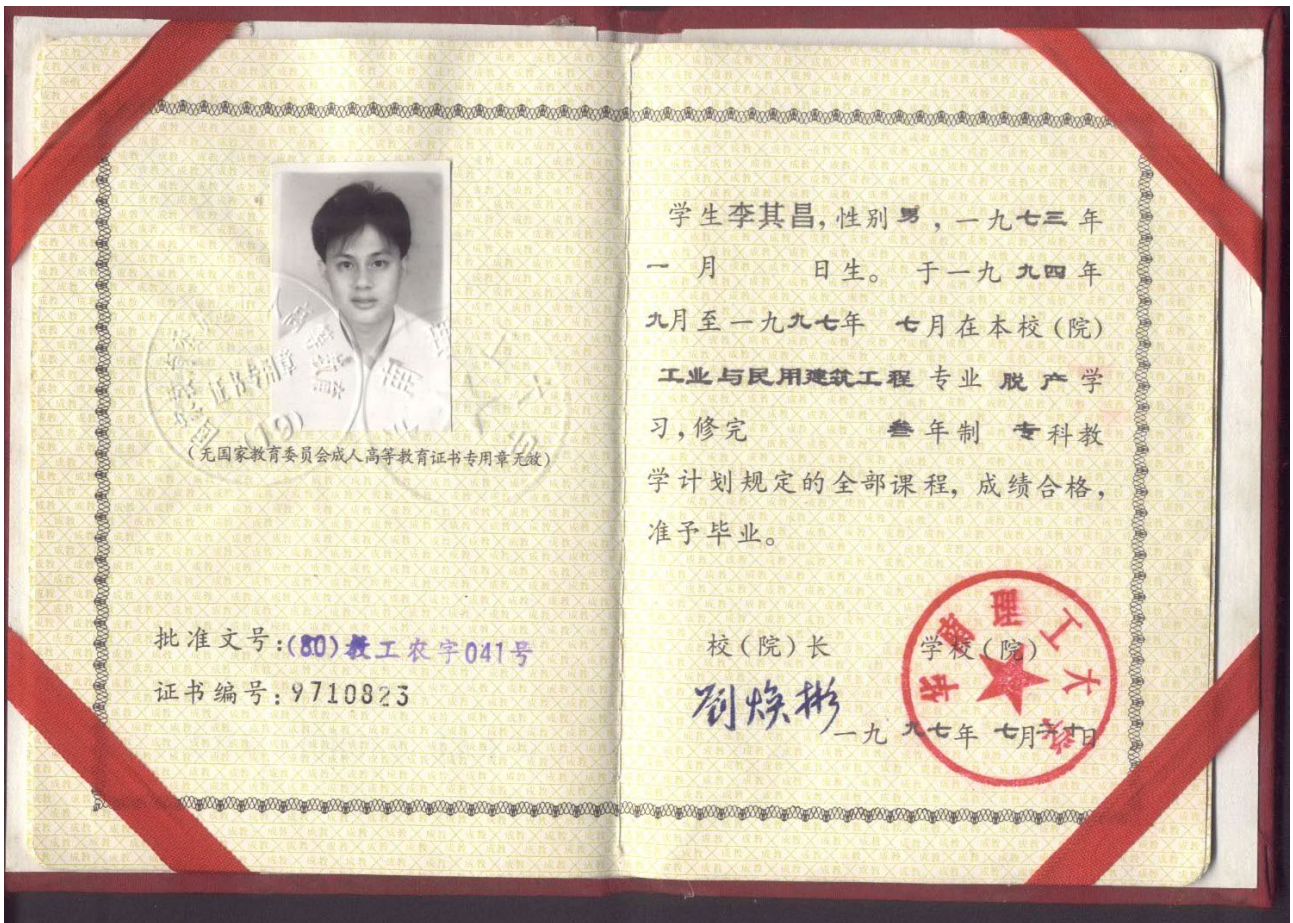 (无国家教育委员会成人高等教育证书专用章无效)
批准文号:(80)教工农字041号
证书编号:9710823
学生李其昌,性别男,一九七三年
一月 日生。于一九九四年
九月至一九九七年 七月在本校(院)
工业与民用建筑工程专业 脱产学
习,修完 叁年制 专科教
学计划规定的全部课程,成绩合格,
准予毕业。
校(院)长 学校(院)
刘焕彬
一九九七年 七月 日
华南理工大学
证书专用章